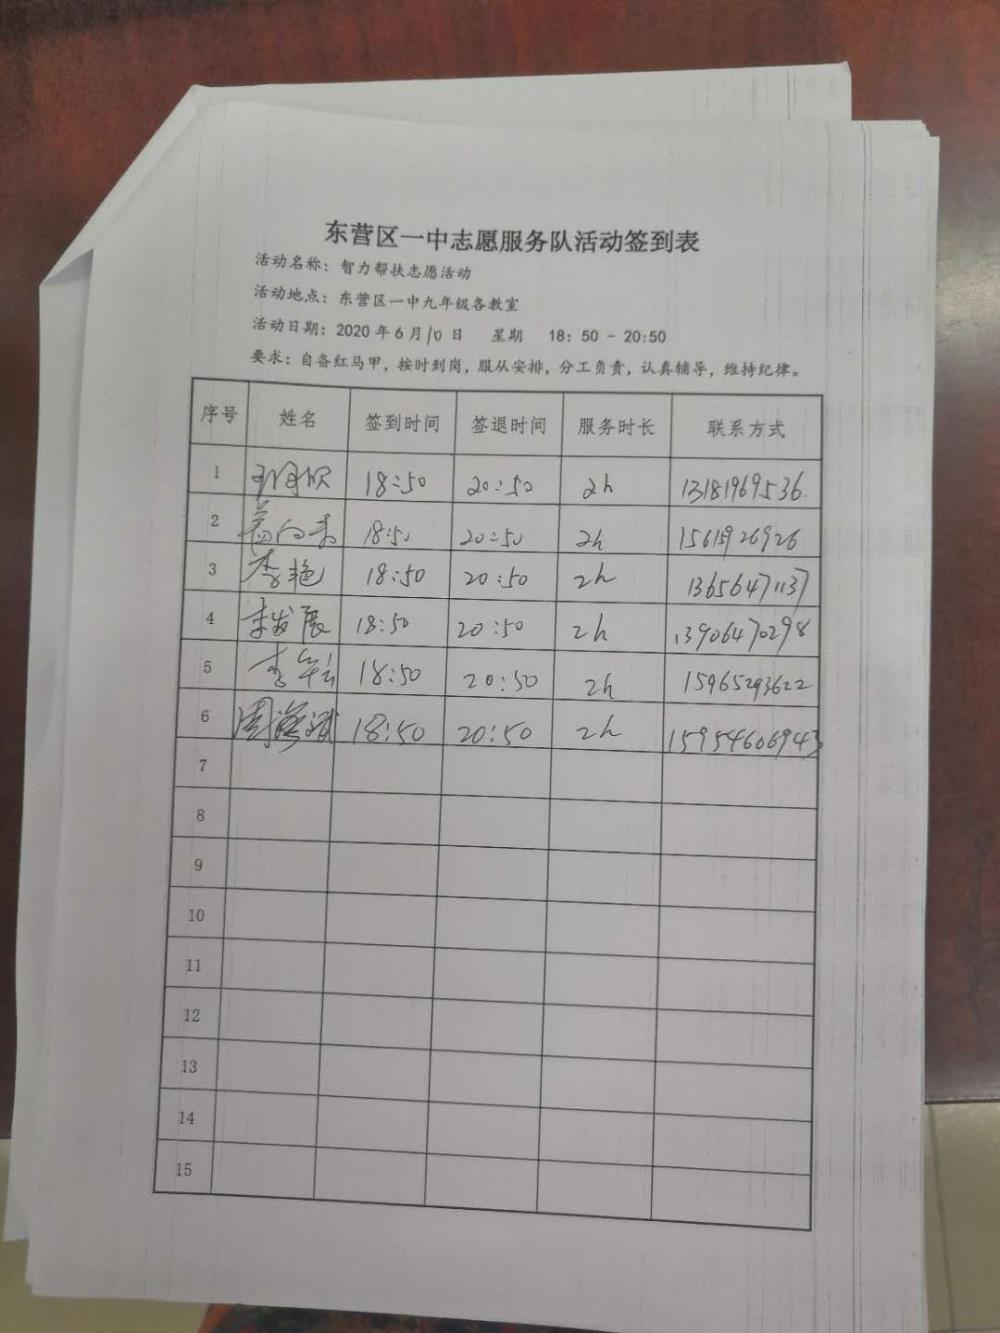 东营区一中志愿服务队活动签到表
活动名称：智力帮扶志愿活动
活动地点：东营区一中九年级各教室
活动日期：2020年6月10日 星期 18：50－20:50
要求：自备红马甲，按时到岗，服从安排，分工负责，认真辅导，维持纪律。
序号 姓名 签到时间 签退时间 服务时长 联系方式
1 18:50 20:50 2h 13181969536
2 18:50 20:50 2h
3 李艳 18:50 20:50 2h 13656471137
4 李发展 18:50 20:50 2h 13906470298
5 18:50 20:50 2h 15965293622
6 周海斌 18:50 20:50 2h 15954606943
7
8
9
10
11
12
13
14
15